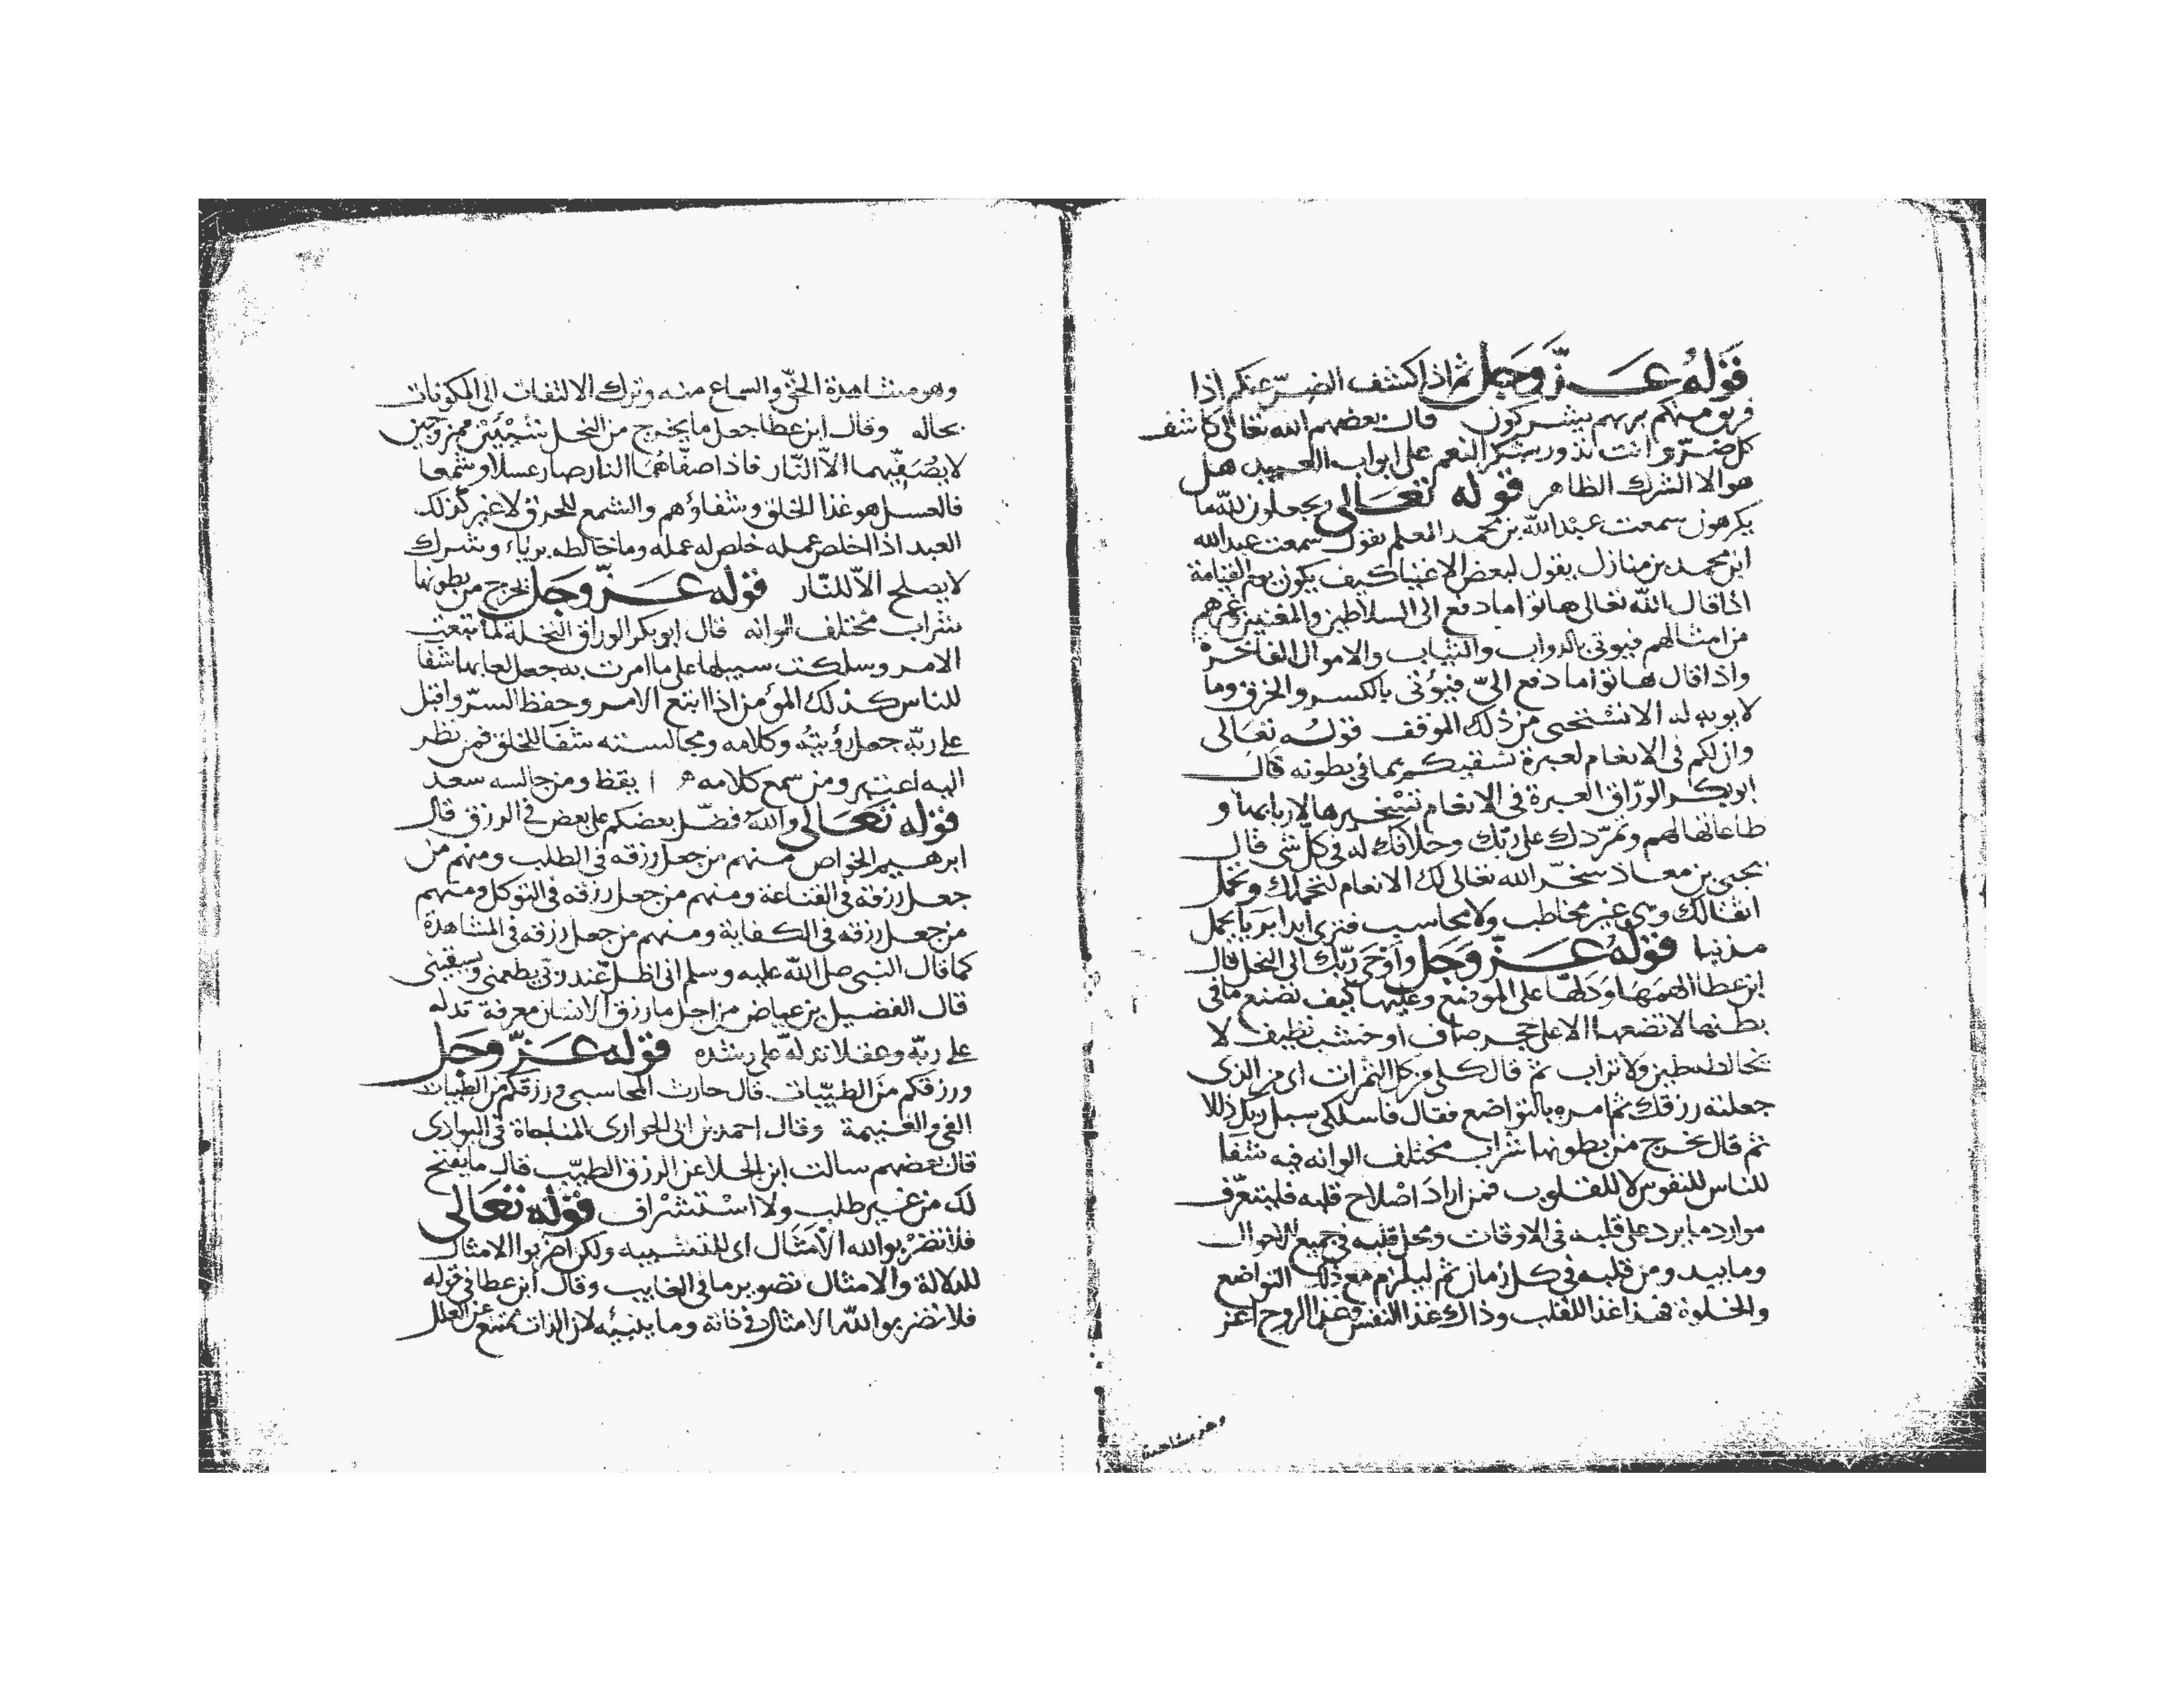 قوله عز وجل ثم اذا كشف الضر عنكم اذا
فريق منكم بربهم يشركون قال بعضهم الله تعالى كاشف
كل ضر وانت تدور بشكر النعم على ابواب العبيد هل
هو الا الشرك الظاهر قوله تعالى ويجعلون لله ما
يكرهون سمعت عبد الله بن محمد المعلم يقول سمعت عبد الله
ابن محمد بن منازل يقول لبعض الاغنيا كيف يكون يوم القيامة
اذا قال الله تعالى هاتوا ما دفع الى السلاطين والمغنين وغيرهم
من امثالهم فيوتى بالدواب والثياب والاموال الفاخرة
واذا قال هاتوا ما دفع الىّ فيؤتى بالكسر والخرق وما
لا يوبه له الا تستحيى من ذلك الموقف قوله تعالى
وان لكم فى الانعام لعبرة نسقيكم مما فى بطونه قال
ابو بكر الورّاق العبرة فى الانعام تسخيرها لاربابها و
طاعاتها لهم وتمرّدك على ربّك وخلافك له فى كلّ شى قال
يحيى بن معاذ سخّر الله تعالى لك الانعام لتحملك وتحمل
اثقالك وهى غير مخاطب ولا محاسب فترى ابدا بريا يحمل
مذنبا قوله عزّ وجل وأوحى ربّك الى النحل قال
ابن عطا الهمها ودلّها على الموضع وعلّمها كيف تضع ما فى
بطنها لا تضعها الا على حجر صاف او خشب نظيف لا
يخالطه طين ولا تراب ثم قال كلى من كل الثمرات اى من الذى
جعلته رزقك ثم امره بالتواضع فقال فاسلكى سبل ربك ذللا
ثم قال يخرج من بطونها شراب مختلف الوانه فيه شفا
للناس للنفوس لا للقلوب فمن اراد اصلاح قلبه فليتعرّف
موارد ما يرد على قلبه فى الاوقات ومحل قلبه فى جميع الاحوال
وما يبيد ومن قلبه فى كل زمان ثم ليلزم مع ذلك التواضع
والخلوة فهذا غذا للقلب وذاك غذا النفس وغذا الروح اعز
وهو مشاهدة
وهو مشاهدة الحقّ والسماع منه وترك الالتفات الى المكونات
بحاله وقال ابن عطا جعل ما يخرج من النحل شيئين ممزوجين
لا يصفّيهما الاّ النّار فاذا صفّاهما النار صار عسلا وشمعا
فالعسل هو غذا الخلق وشفاؤهم والشمع للحرق لا غير كذلك
العبد اذا اخلص عمله خلص له عمله وما خالطه برياء وشرك
لا يصلح الاّ للنّار قوله عزّ وجل يخرج من بطونها
شراب مختلف الوانه قال ابو بكر الوراق النحلة لما تبعت
الامر وسلكت سبيلها على ما امرت به جعل لعابها شفا
للناس كذلك المؤمن اذا اتبع الامر وحفظ السرّ واقبل
على ربّه جعل رؤيته وكلامه ومجالسته شفا للخلق فمن نظر
اليه اعتبر ومن سمع كلامه يقظ ومن جالسه سعد
قوله تعالى والله فضّل بعضكم على بعض فى الرزق قال
ابرهيم الخواص منهم من جعل رزقه فى الطلب ومنهم من
جعل رزقه فى القناعة ومنهم من جعل رزقه فى التوكل ومنهم
من جعل رزقه فى الكفاية ومنهم من جعل رزقه فى المشاهدة
كما قال النبى صلى الله عليه وسلم انى اظلّ عند ربى يطعمنى ويسقينى
قال الفضيل بن عياض من اجل ما رزق الانسان معرفة تدله
على ربّه وعقلا تدلّه على رشده قوله عزّ وجل
ورزقكم من الطيّبات قال حارث المحاسبى ورزقكم من الطيبات
الفىء والغنيمة وقال احمد بن ابى الحوارى المناجاة فى البوادى
قال بعضهم سالت ابن الجلا عن الرزق الطيّب قال ما يفتح
لك من غير طلب ولا استشراف قوله تعالى
فلا تضربوا لله الامثال اى للتشبيه ولكن اضربوا الامثال
للدلالة والامثال تصوير ما فى الغايب وقال ابن عطا فى قوله
فلا تضربوا لله الامثال فى ذاته وما ينبئه لان الذات تمتنع عن العلل